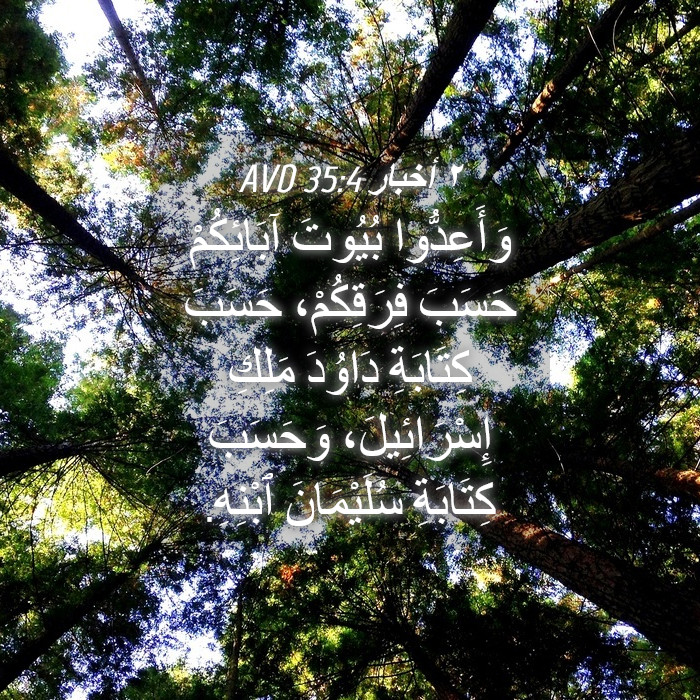 ٢ أخبار 35:4 AVD
وَأَعِدُّوا بُيُوتَ آبَائِكُمْ
حَسَبَ فِرَقِكُمْ، حَسَبَ
كِتَابَةِ دَاوُدَ مَلِك
إِسْرَائِيلَ، وَحَسَبَ
كِتَابَةِ سُلَيْمَانَ ٱبْنِهِ.